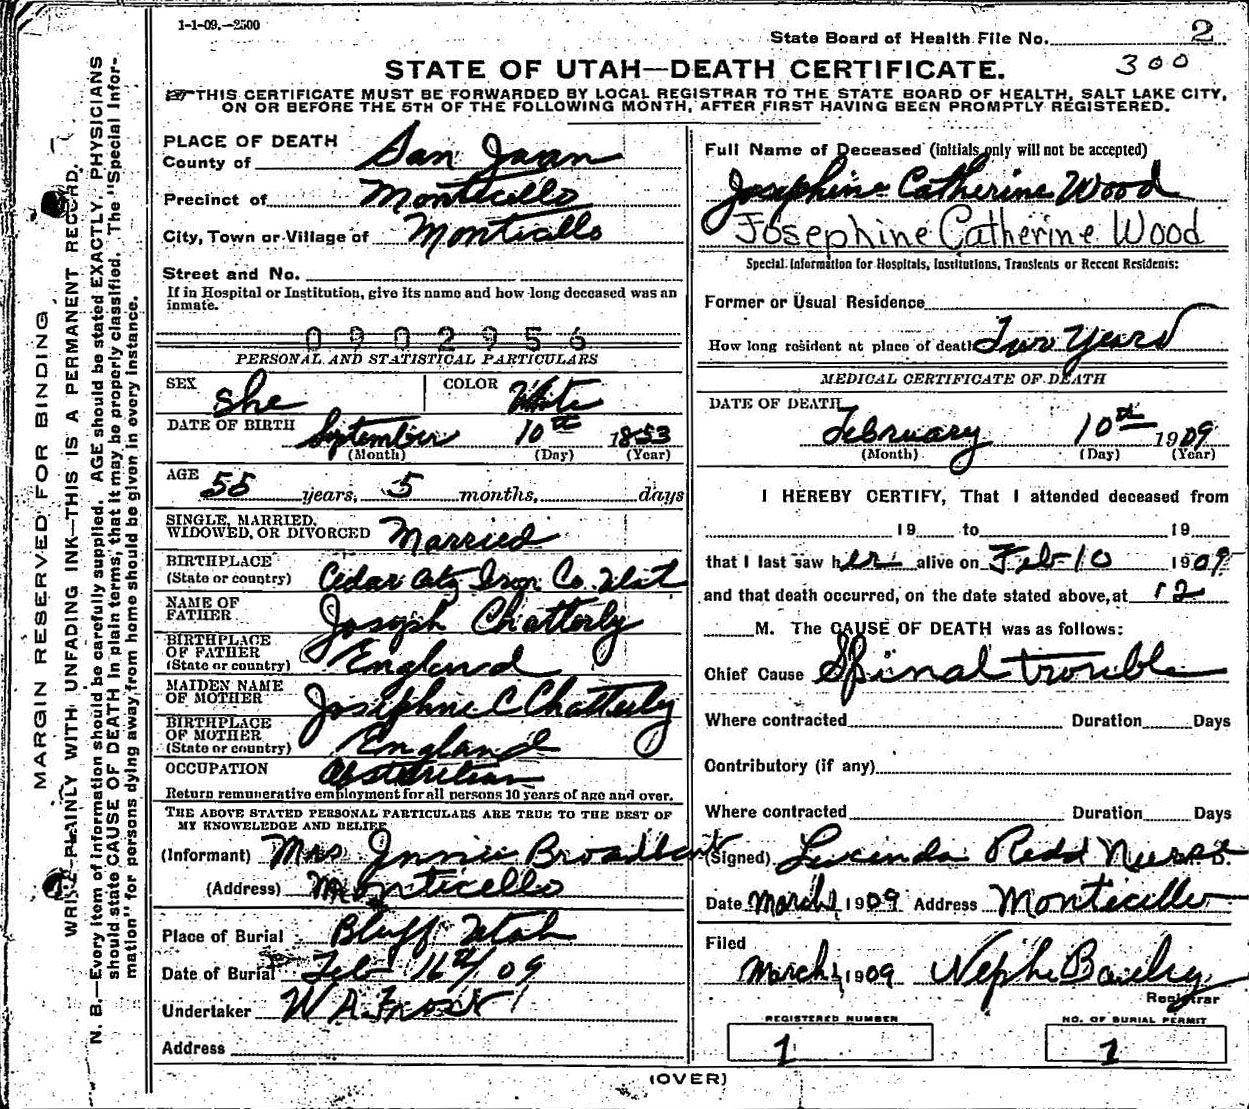 1-1-09.—2500
State Board of Health File No. 2
300
STATE OF UTAH—DEATH CERTIFICATE.
THIS CERTIFICATE MUST BE FORWARDED BY LOCAL REGISTRAR TO THE STATE BOARD OF HEALTH, SALT LAKE CITY,
ON OR BEFORE THE 5TH OF THE FOLLOWING MONTH, AFTER FIRST HAVING BEEN PROMPTLY REGISTERED.
MARGIN RESERVED FOR BINDING
WRITE PLAINLY WITH UNFADING INK—THIS IS A PERMANENT RECORD.
N. B.—Every item of information should be carefully supplied. AGE should be stated EXACTLY. PHYSICIANS
should state CAUSE OF DEATH in plain terms, that it may be properly classified. The "Special Infor-
mation" for persons dying away from home should be given in every instance.
PLACE OF DEATH
County of San Juan
Precinct of Monticello
City, Town or Village of Monticello
Street and No.
If in Hospital or Institution, give its name and how long deceased was an
inmate.
0902956
PERSONAL AND STATISTICAL PARTICULARS
SEX she COLOR White
DATE OF BIRTH September 10th 1853
(Month) (Day) (Year)
AGE 55 years, 5 months, days
SINGLE, MARRIED,
WIDOWED, OR DIVORCED Married
BIRTHPLACE
(State or country) Cedar City Iron Co. Utah
NAME OF
FATHER Joseph Chatterly
BIRTHPLACE
OF FATHER
(State or country) England
MAIDEN NAME
OF MOTHER Josephine C Chatterly
BIRTHPLACE
OF MOTHER
(State or country) England
OCCUPATION
Return remunerative employment for all persons 10 years of age and over.
THE ABOVE STATED PERSONAL PARTICULARS ARE TRUE TO THE BEST OF
MY KNOWLEDGE AND BELIEF
(Informant) Mrs Broadbent
(Address) Monticello
Place of Burial Bluff Utah
Date of Burial Feb 09
Undertaker W A Frost
Address
Full Name of Deceased (initials only will not be accepted)
Josephine Catherine Wood
Josephine Catherine Wood
Special Information for Hospitals, Institutions, Transients or Recent Residents:
Former or Usual Residence
How long resident at place of death Two Years
MEDICAL CERTIFICATE OF DEATH
DATE OF DEATH
February 10th 1909
(Month) (Day) (Year)
I HEREBY CERTIFY, That I attended deceased from
19 to 19
that I last saw her alive on Feb-10 1909
and that death occurred, on the date stated above, at 12
M. The CAUSE OF DEATH was as follows:
Chief Cause Spinal trouble
Where contracted Duration Days
Contributory (if any)
Where contracted Duration Days
(Signed) Lucinda Redd Nurse.
Date March 1, 1909 Address Monticello
Filed
March 1, 1909 Nephi Bailey
Registrar
REGISTERED NUMBER NO. OF BURIAL PERMIT
1 1
(OVER)